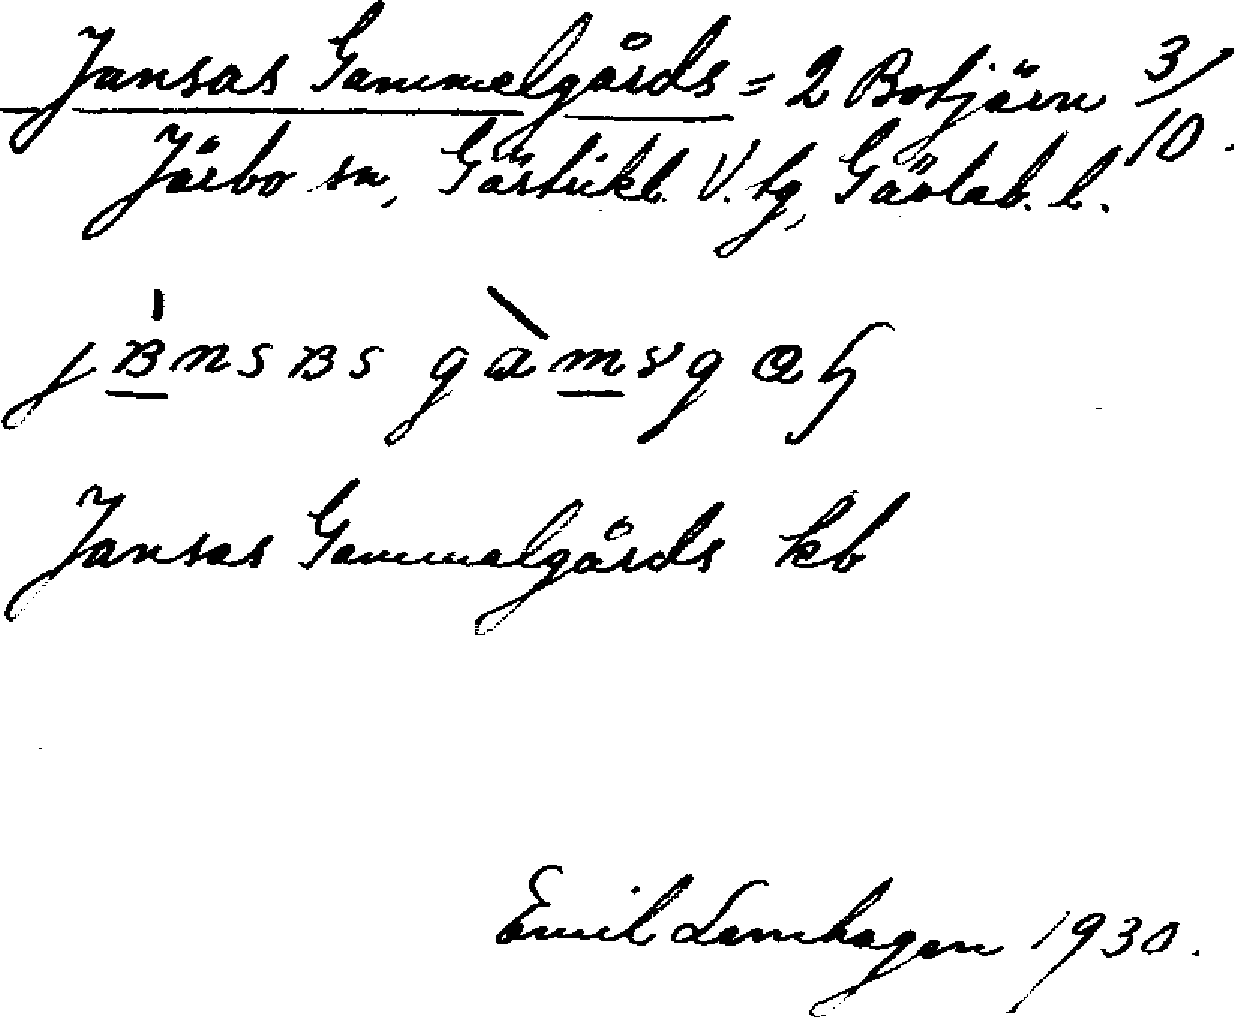 Jansas Gammelgårds = 2 Botjärn 3/10.
Järbo sn, Gästrikl. V. tg, Gävleb. l.
Jansas Gammelgårds kb
Emil Lamhagen 1930.